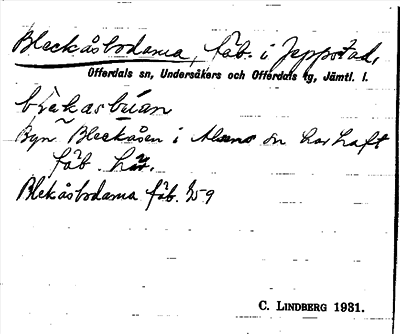 Bleckåsbodarna, fäb. i Jeppstad,
Offerdals sn, Undersåkers och Offerdals tg, Jämtl. l.
Byn Bleckåsen i Alsens sn har haft
fäb. här.
Blekåsbodarna fäb. 259
C. LINDBERG 1931.